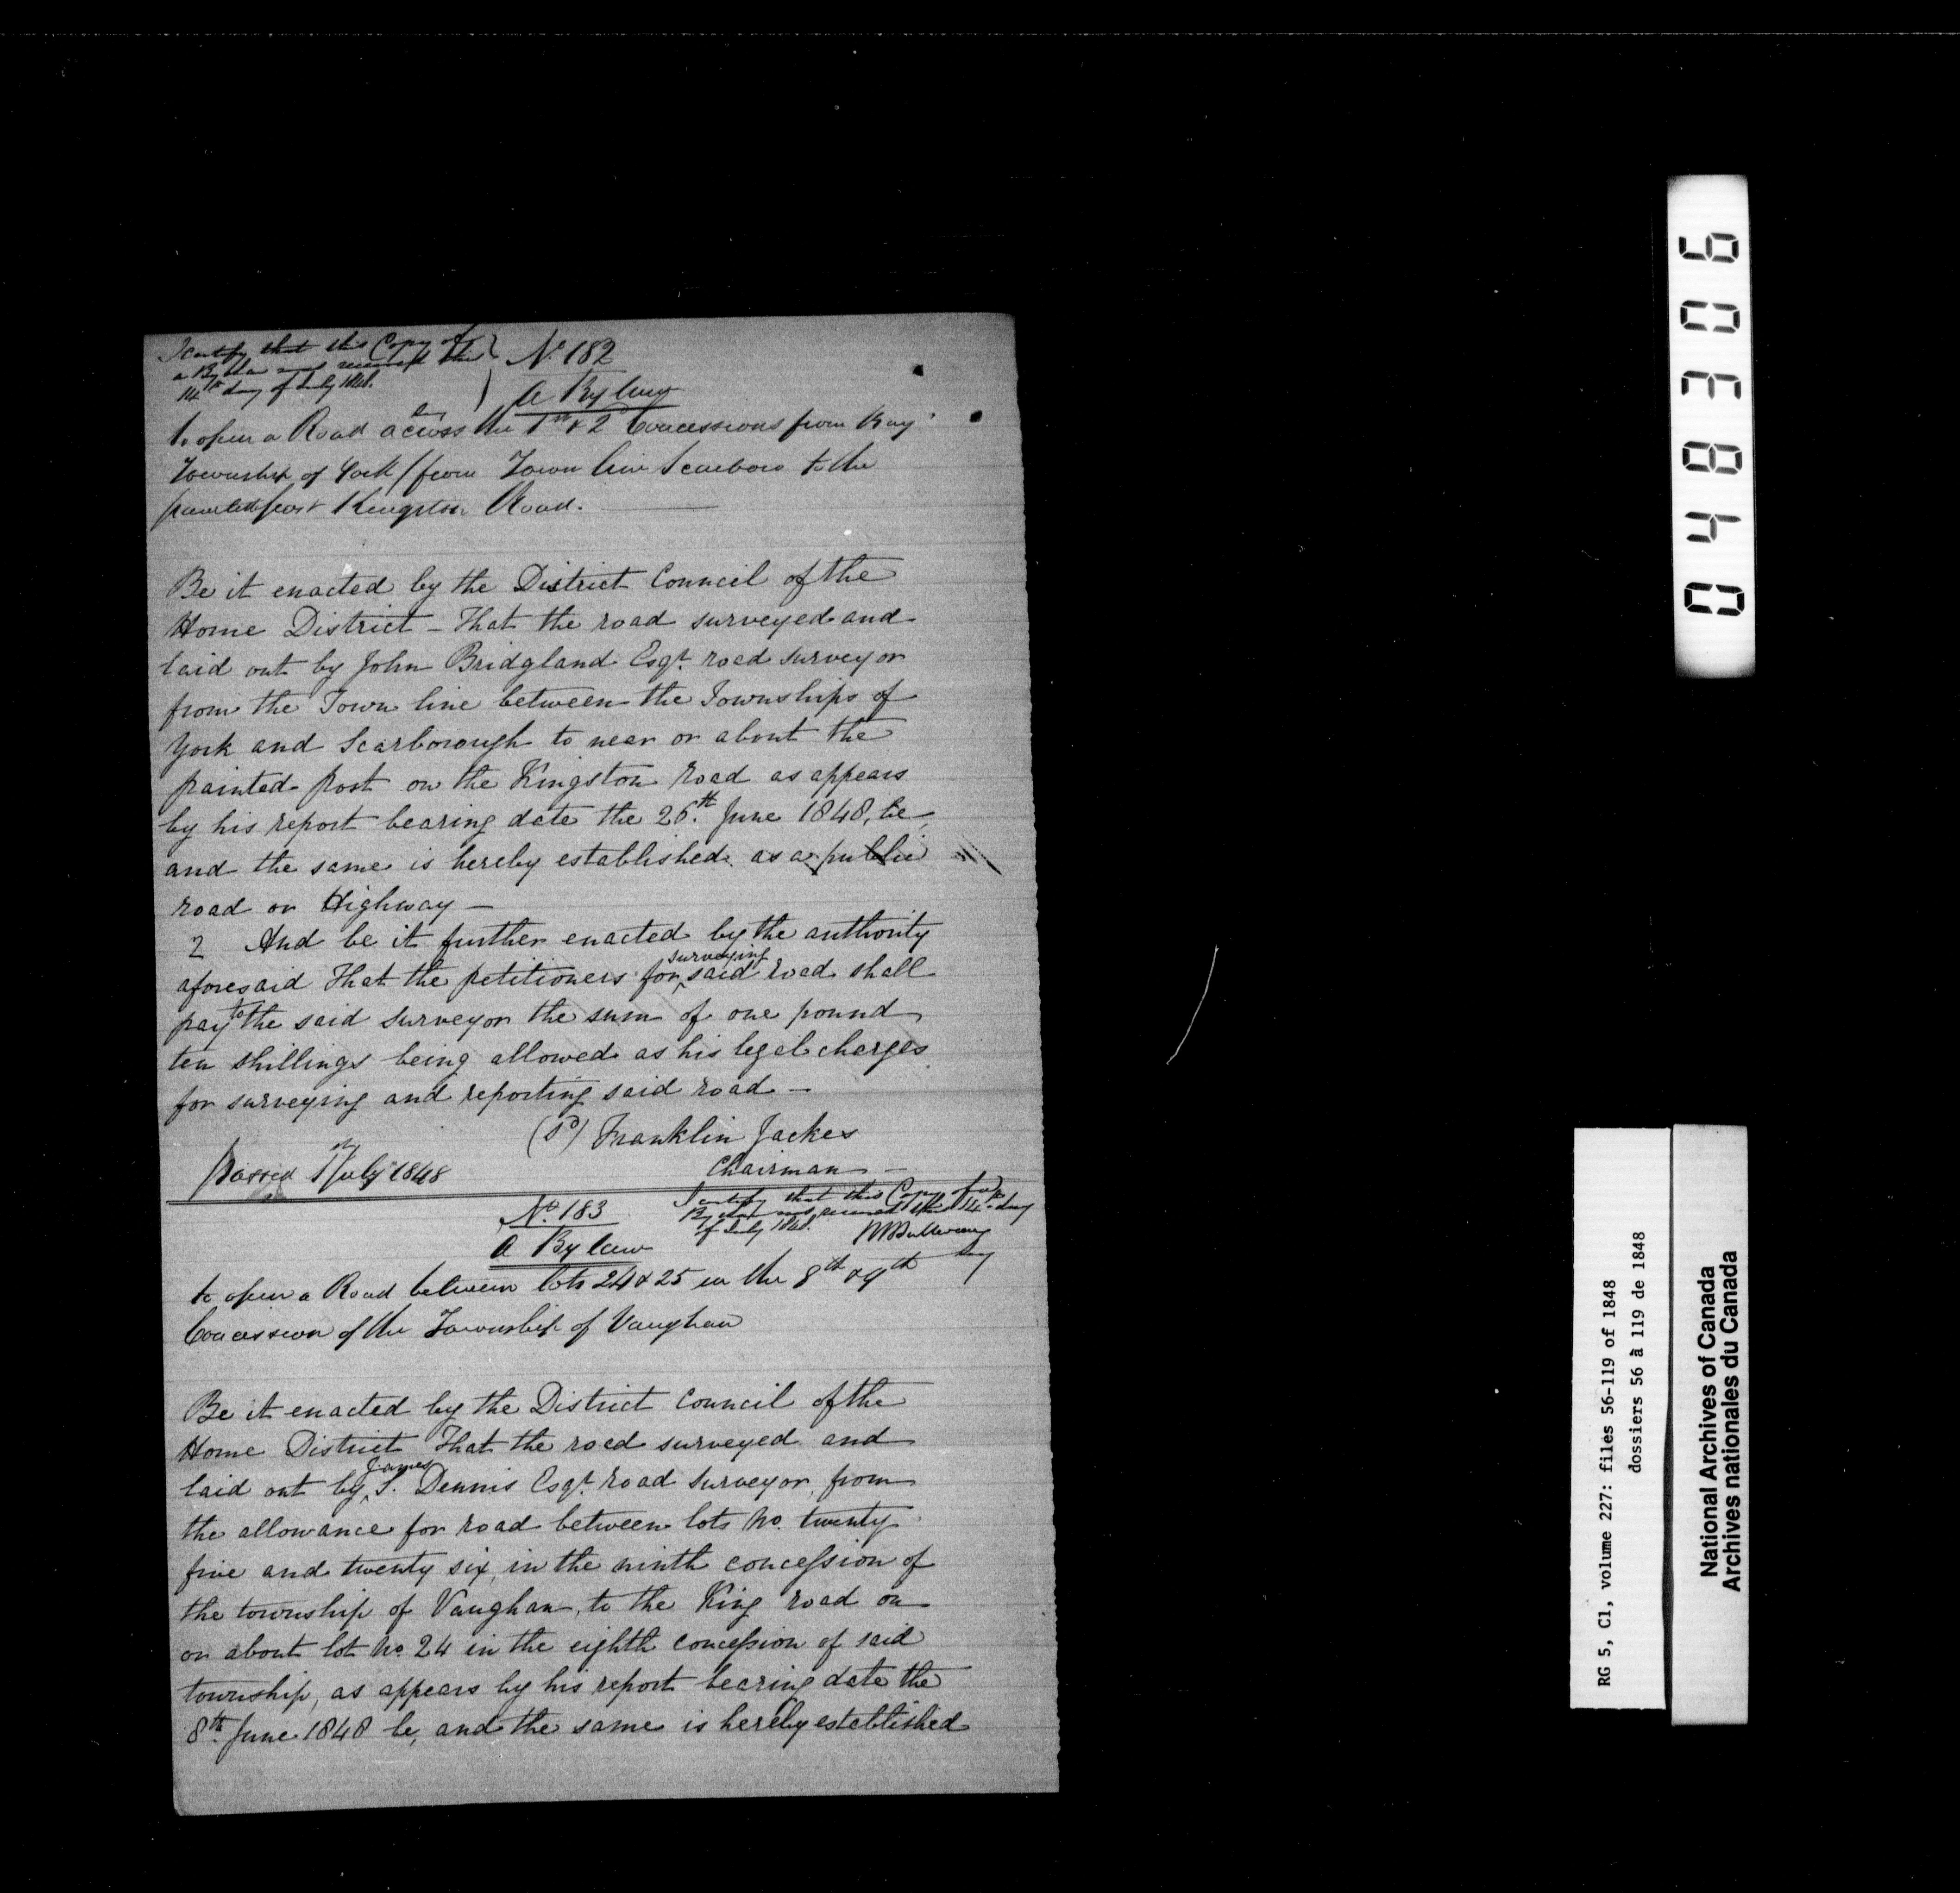 I certify that this Copy of
a By law was received the
14th day of July 1848.
No. 182
A By law
to open a Road across the 1st & 2d Concessions from Bay
Township of York / from Town line Scarboro to the
painted post Kingston Road.
Be it enacted by the District Council of the
Home District - That the road surveyed and
laid out by John Bridgland Esqr. road surveyor
from the Town line between the Townships of
York and Scarborough to near or about the
painted post on the Kingston road as appears
by his report bearing date the 26th. June 1848, be,
and the same is hereby established as a public
road or Highway -
2 And be it further enacted by the authority
aforesaid That the petitioners for surveying said road shall
pay to the said surveyor the sum of one pound
ten shillings being allowed as his legal charges
for surveying and reporting said road -
(Sd) Franklin Jackes
Chairman -
Passed 1st July 1848
No. 183
A By law
I certify that this Copy of a
By law was received the 14th day
of July 1848.
to open a Road between lots 24 & 25 in the 8th & 9th
Concession of the Township of Vaughan
Be it enacted by the District Council of the
Home District That the road surveyed and
laid out by James S. Dennis Esqr. road surveyor, from
the allowance for road between lots No. twenty
five and twenty six, in the ninth concession of
the township of Vaughan, to the King road on
or about lot No. 24 in the eighth concession of said
township, as appears by his report bearing date the
8th. June 1848 be, and the same is hereby established
048306
RG 5, C1, volume 227: files 56-119 of 1848
dossiers 56 à 119 de 1848
National Archives of Canada
Archives nationales du Canada